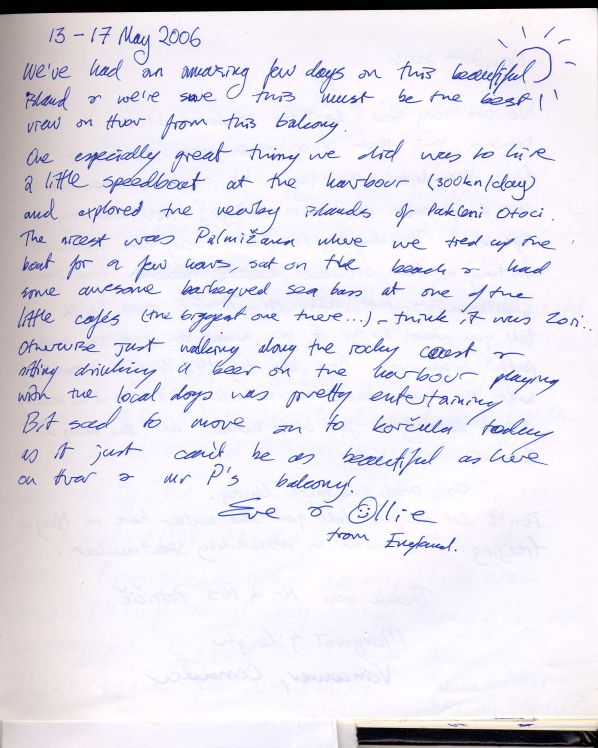 13 - 17 May 2006
We've had an amazing few days on this beautiful
island & we're sure this must be the best!
view on Hvar from this balcony.
One especially great thing we did was to hire
a little speedboat at the harbour (300kn/day)
and explored the nearby islands of Pakleni Otoci.
The nicest was Palmižana where we tied up the
boat for a few hours, sat on the beach & had
some awesome barbequed sea bass at one of the
little cafés (the biggest one there...) - think it was Zori..
Otherwise just walking along the rocky coast &
sitting drinking a beer on the harbour playing
with the local dogs was pretty entertaining
Bit sad to move on to Korčula today
as it just can't be as beautiful as here
on Hvar & Mr P's balcony!
Eve & Ollie
from England.